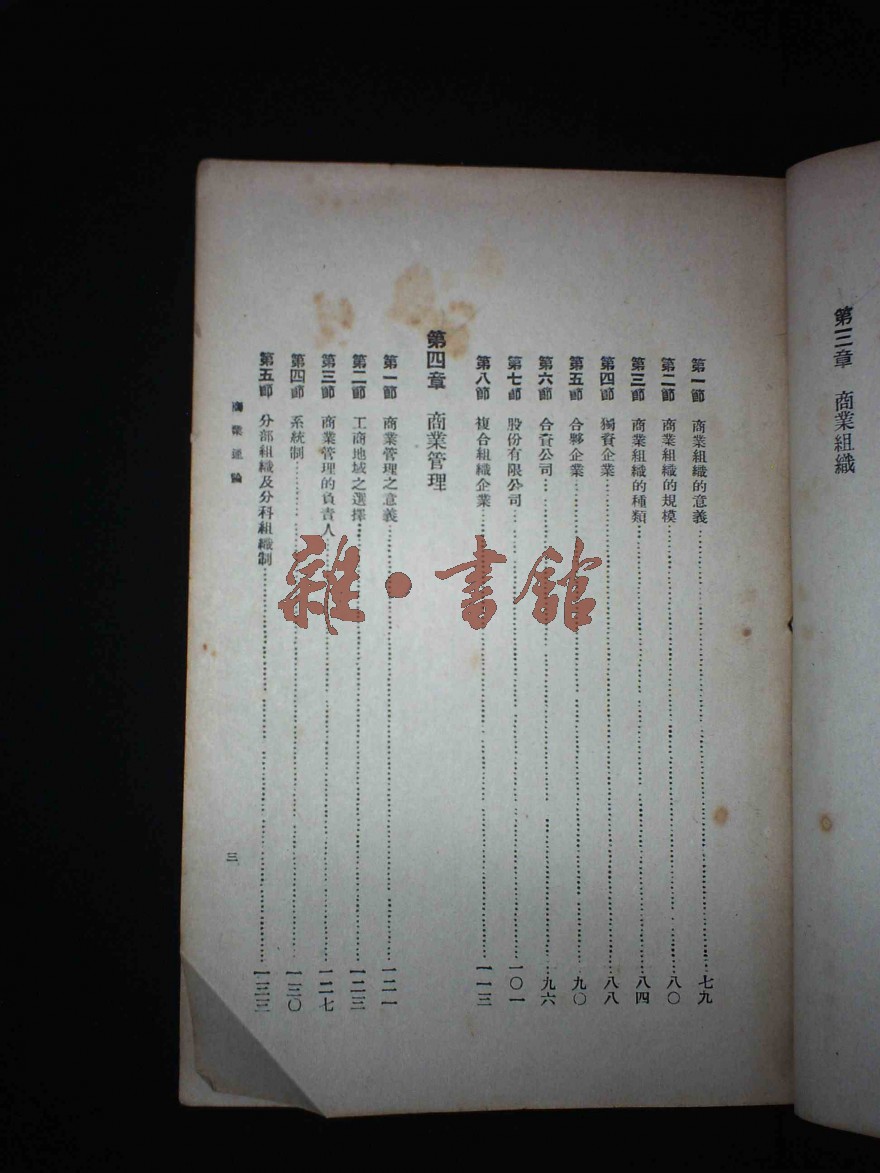 第三章 商業組織
第一節 商業組織的意義 七九
第二節 商業組織的規模 八〇
第三節 商業組織的種類 八四
第四節 獨資企業 八八
第五節 合夥企業 九〇
第六節 合資公司 九六
第七節 股份有限公司 一〇一
第八節 複合組織企業 一一三
第四章 商業管理
第一節 商業管理之意義 一二一
第二節 工商地域之選擇 一二三
第三節 商業管理的負責人 一二七
第四節 系統制 一三〇
第五節 分部組織及分科組織制 一三三
商業通論
三
雜·書館